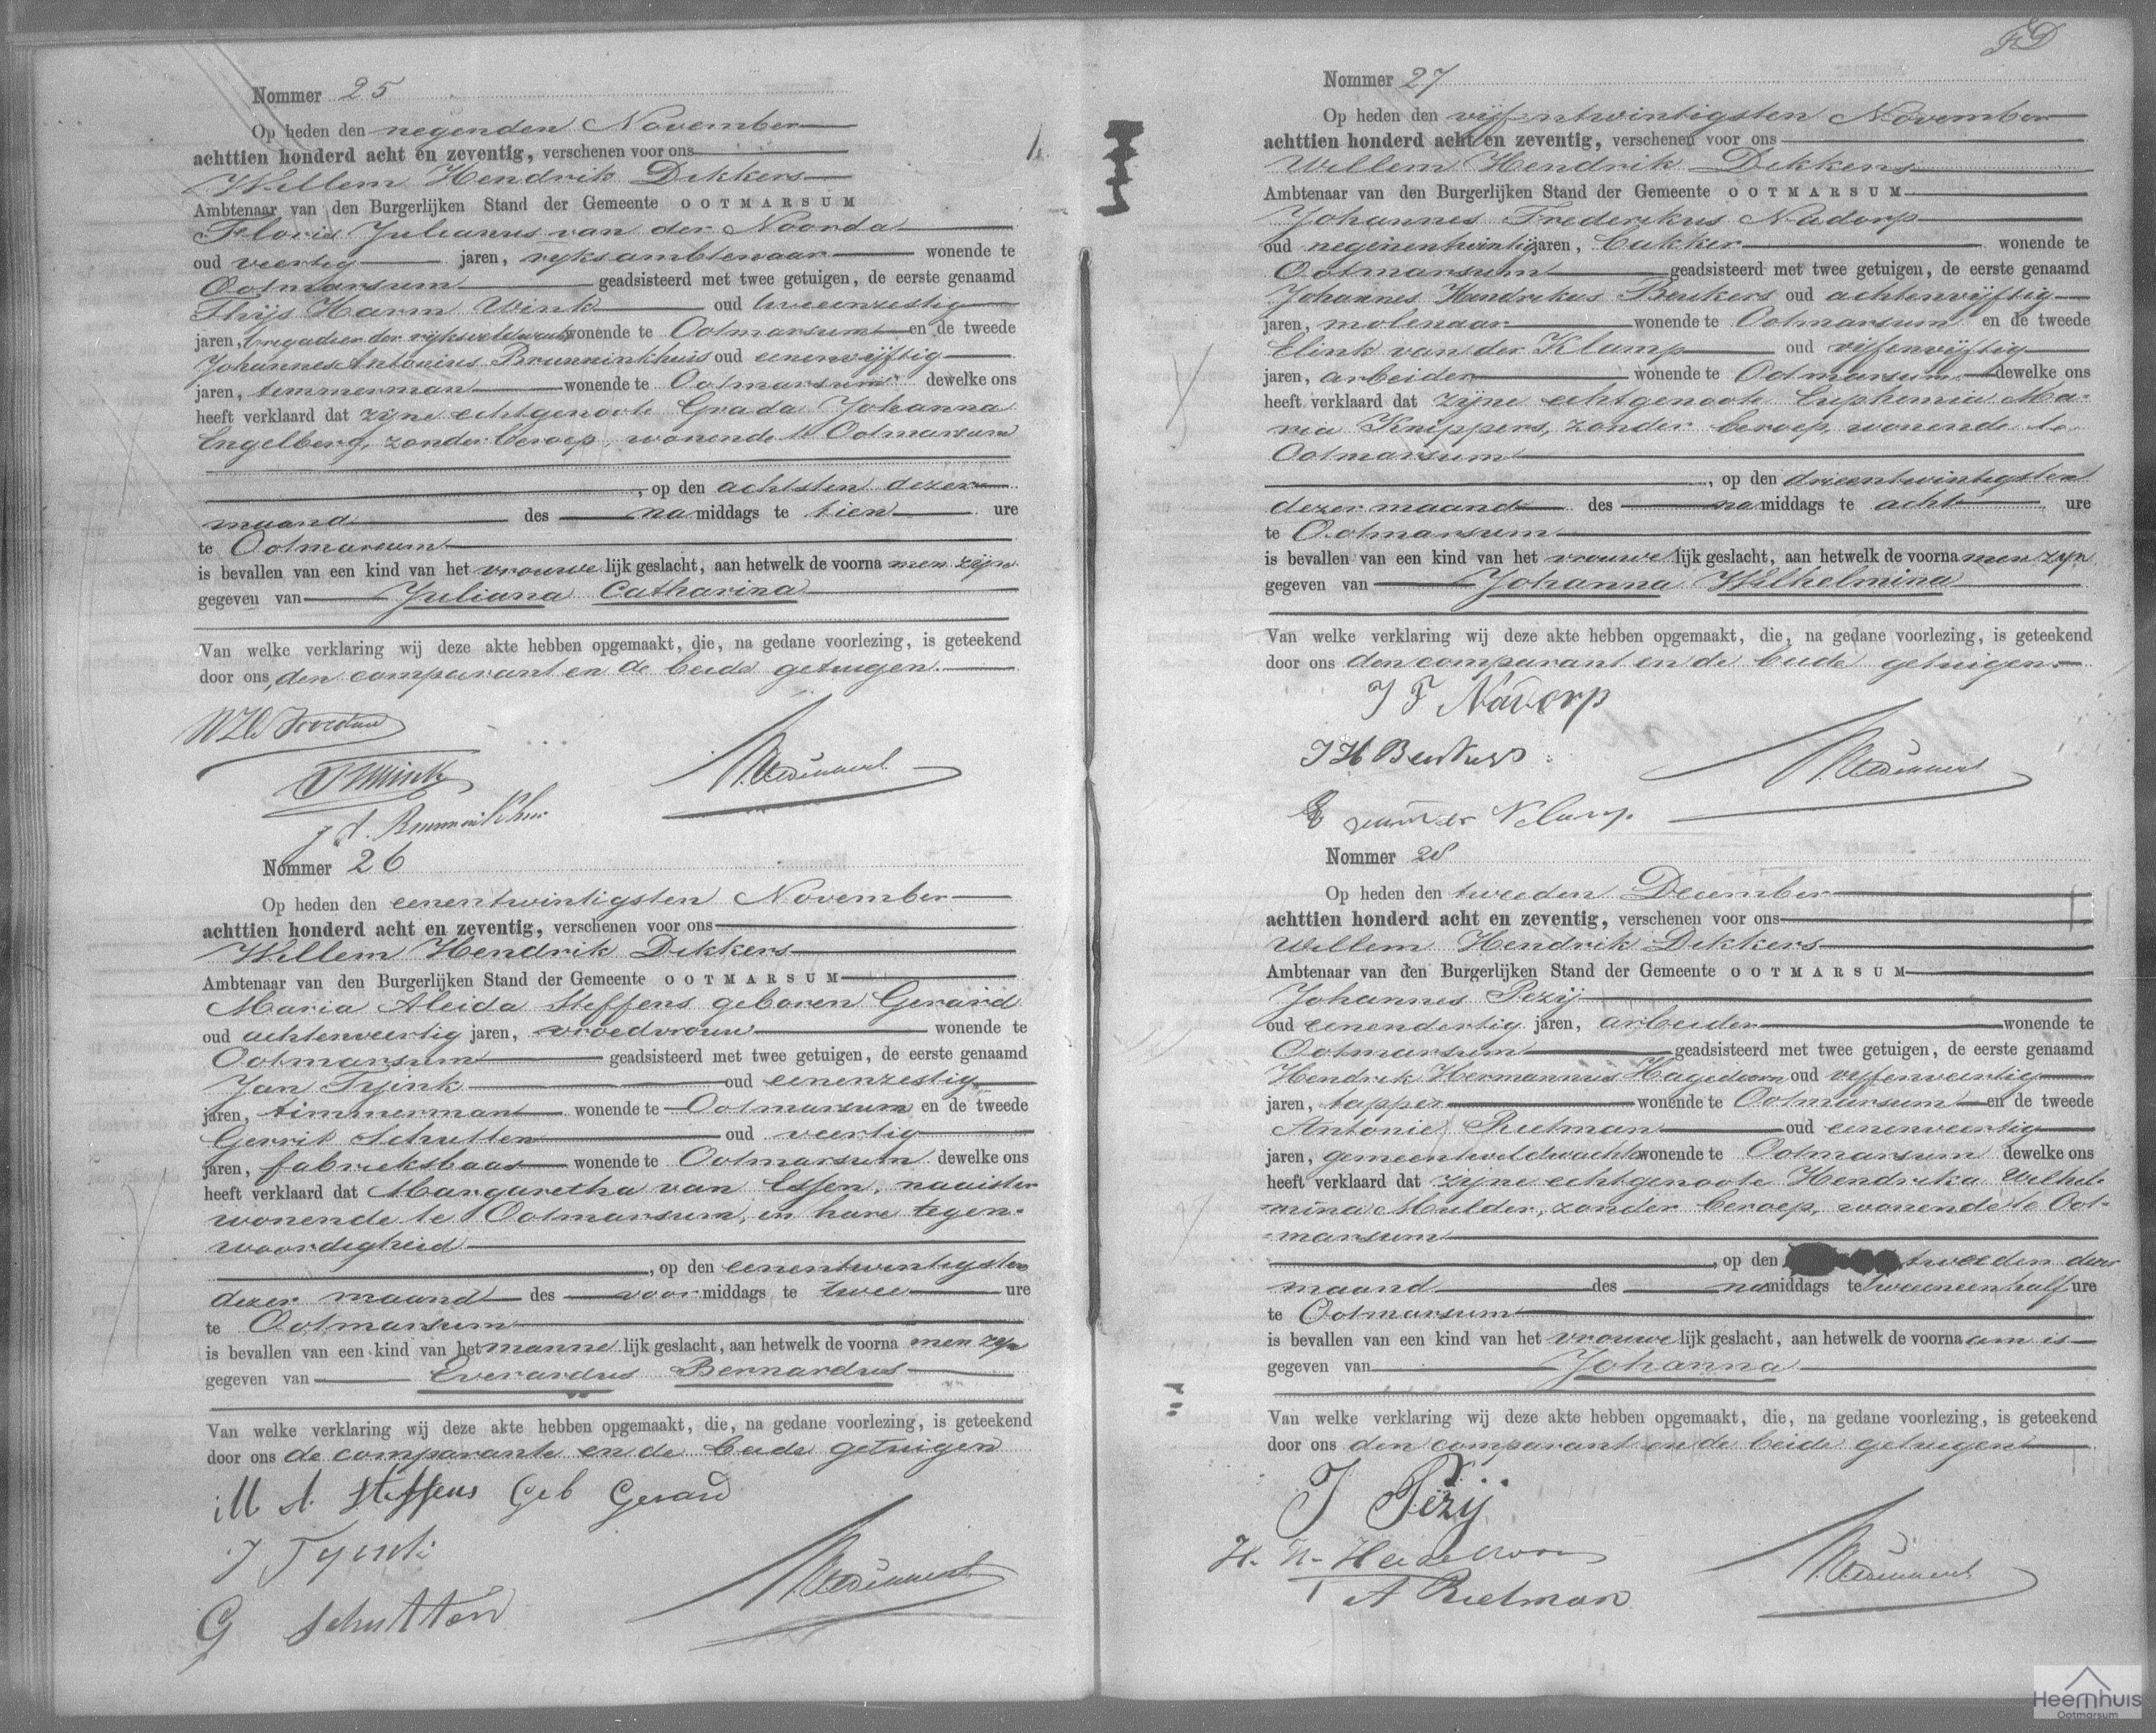 Nommer 25
Op heden den negenden November
achttien honderd acht en zeventig, verschenen voor ons
Willem Hendrik Dikkers
Ambtenaar van den Burgerlijken Stand der Gemeente OOTMARSUM
Floris Julianus van der Noorda
oud veertig jaren, rijksambtenaar wonende te
Ootmarsum geadsisteerd met twee getuigen, de eerste genaamd
Thijs Harm Wink oud tweeenzestig
jaren, brigadier der rijksveldwacht wonende te Ootmarsum en de tweede
Johannes Antonius Brunninkhuis oud eenenvijftig
jaren, timmerman wonende te Ootmarsum dewelke ons
heeft verklaard dat zijne echtgenoote Grada Johanna
Engelberg, zonder beroep, wonende te Ootmarsum
, op den achtsten dezer
maand des namiddags te tien ure
te Ootmarsum
is bevallen van een kind van het vrouwelijk geslacht, aan hetwelk de voornamen zijn
gegeven van Juliana Catharina
Van welke verklaring wij deze akte hebben opgemaakt, die, na gedane voorlezing, is geteekend
door ons, den comparant en de beide getuigen.
Nommer 26
Op heden den eenentwintigsten November
achttien honderd acht en zeventig, verschenen voor ons
Willem Hendrik Dikkers
Ambtenaar van den Burgerlijken Stand der Gemeente OOTMARSUM
Maria Aleida Steffens geboren Gerard
oud achtenveertig jaren, vroedvrouw wonende te
Ootmarsum geadsisteerd met twee getuigen, de eerste genaamd
Jan Tyink oud eenenzestig
jaren, timmerman wonende te Ootmarsum en de tweede
Gerrit Schutten oud veertig
jaren, fabrieksbaas wonende te Ootmarsum dewelke ons
heeft verklaard dat Margaretha van Essen, naaister
wonende te Ootmarsum, in hare tegen-
woordigheid
, op den eenentwintigsten
dezer maand des voormiddags te twee ure
te Ootmarsum
is bevallen van een kind van het mannelijk geslacht, aan hetwelk de voornamen zijn
gegeven van Everardus Bernardus
Van welke verklaring wij deze akte hebben opgemaakt, die, na gedane voorlezing, is geteekend
door ons de comparante en de beide getuigen
M A Steffens Geb Gerard
J Tyink
G Schutten
Nommer 27
Op heden den vijfentwintigsten November
achttien honderd acht en zeventig, verschenen voor ons
Willem Hendrik Dikkers
Ambtenaar van den Burgerlijken Stand der Gemeente OOTMARSUM
Johannes Frederikus Nadorp
oud negenentwintig jaren, bakker wonende te
Ootmarsum geadsisteerd met twee getuigen, de eerste genaamd
Johannes Hendrikus Beukers oud achtenvijftig
jaren, molenaar wonende te Ootmarsum en de tweede
Elink van der Klamp oud vijfenvijftig
jaren, arbeider wonende te Ootmarsum dewelke ons
heeft verklaard dat zijne echtgenoote Euphemia Ma-
ria Knippers, zonder beroep, wonende te
Ootmarsum
, op den drieentwintigsten
dezer maand des namiddags te acht ure
te Ootmarsum
is bevallen van een kind van het vrouwelijk geslacht, aan hetwelk de voornamen zijn
gegeven van Johanna Wilhelmina
Van welke verklaring wij deze akte hebben opgemaakt, die, na gedane voorlezing, is geteekend
door ons den comparant en de beide getuigen.
J F Nadorp
J H Beukers
Nommer 28
Op heden den tweeden December
achttien honderd acht en zeventig, verschenen voor ons
Willem Hendrik Dikkers
Ambtenaar van den Burgerlijken Stand der Gemeente OOTMARSUM
Johannes Pezij
oud eenendertig jaren, arbeider wonende te
Ootmarsum geadsisteerd met twee getuigen, de eerste genaamd
Hendrik Hermannus Hagedoorn oud vijfenveertig
jaren, tapper wonende te Ootmarsum en de tweede
Antonie Rietman oud eenenveertig
jaren, gemeenteveldwachter wonende te Ootmarsum dewelke ons
heeft verklaard dat zijne echtgenoote Hendrika Wilhel-
mina Mulder, zonder beroep, wonende te Oot-
marsum
, op den tweeden dezer
maand des namiddags te tweeeneenhalf ure
te Ootmarsum
is bevallen van een kind van het vrouwelijk geslacht, aan hetwelk de voornaam is
gegeven van Johanna
Van welke verklaring wij deze akte hebben opgemaakt, die, na gedane voorlezing, is geteekend
door ons den comparant en de beide getuigen
J Pezij
A Rietman
Heemhuis
Ootmarsum